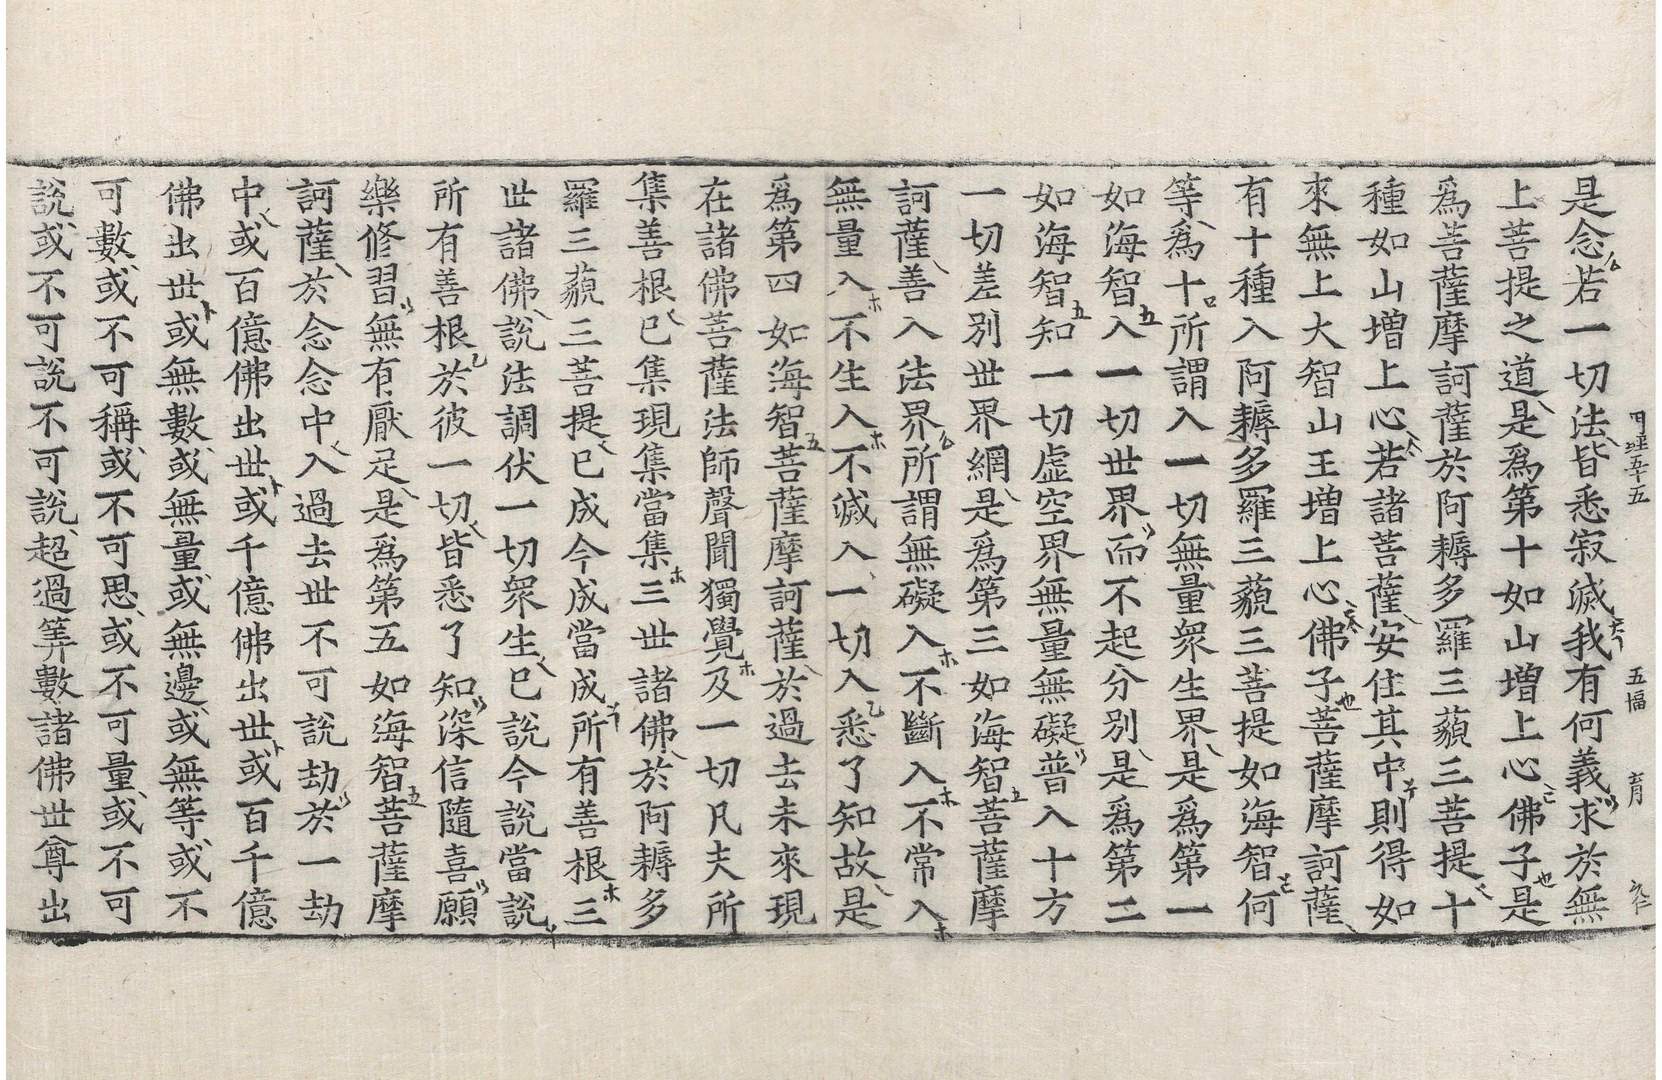 是念若一切法皆悉寂滅我有何義求於無
上菩提之道是爲第十如山增上心佛子是
爲菩薩摩訶薩於阿耨多羅三藐三菩提十
種如山增上心若諸菩薩安住其中則得如
來無上大智山王增上心佛子菩薩摩訶薩
有十種入阿耨多羅三藐三菩提如海智何
等爲十所謂入一切無量衆生界是爲第一
如海智入一切世界而不起分別是爲第二
如海智知一切虛空界無量無礙普入十方
一切差別世界網是爲第三如海智菩薩摩
訶薩善入法界所謂無礙入不斷入不常入
無量入不生入不滅入一切入悉了知故是
爲第四如海智菩薩摩訶薩於過去未來現
在諸佛菩薩法師聲聞獨覺及一切凡夫所
集善根已集現集當集三世諸佛於阿耨多
羅三藐三菩提已成今成當成所有善根三
世諸佛說法調伏一切衆生已說今說當說
所有善根於彼一切皆悉了知深信隨喜願
樂修習無有厭足是爲第五如海智菩薩摩
訶薩於念念中入過去世不可說劫於一劫
中或百億佛出世或千億佛出世或百千億
佛出世或無數或無量或無邊或無等或不
可數或不可稱或不可思或不可量或不可
說或不可說不可說超過筭數諸佛世尊出